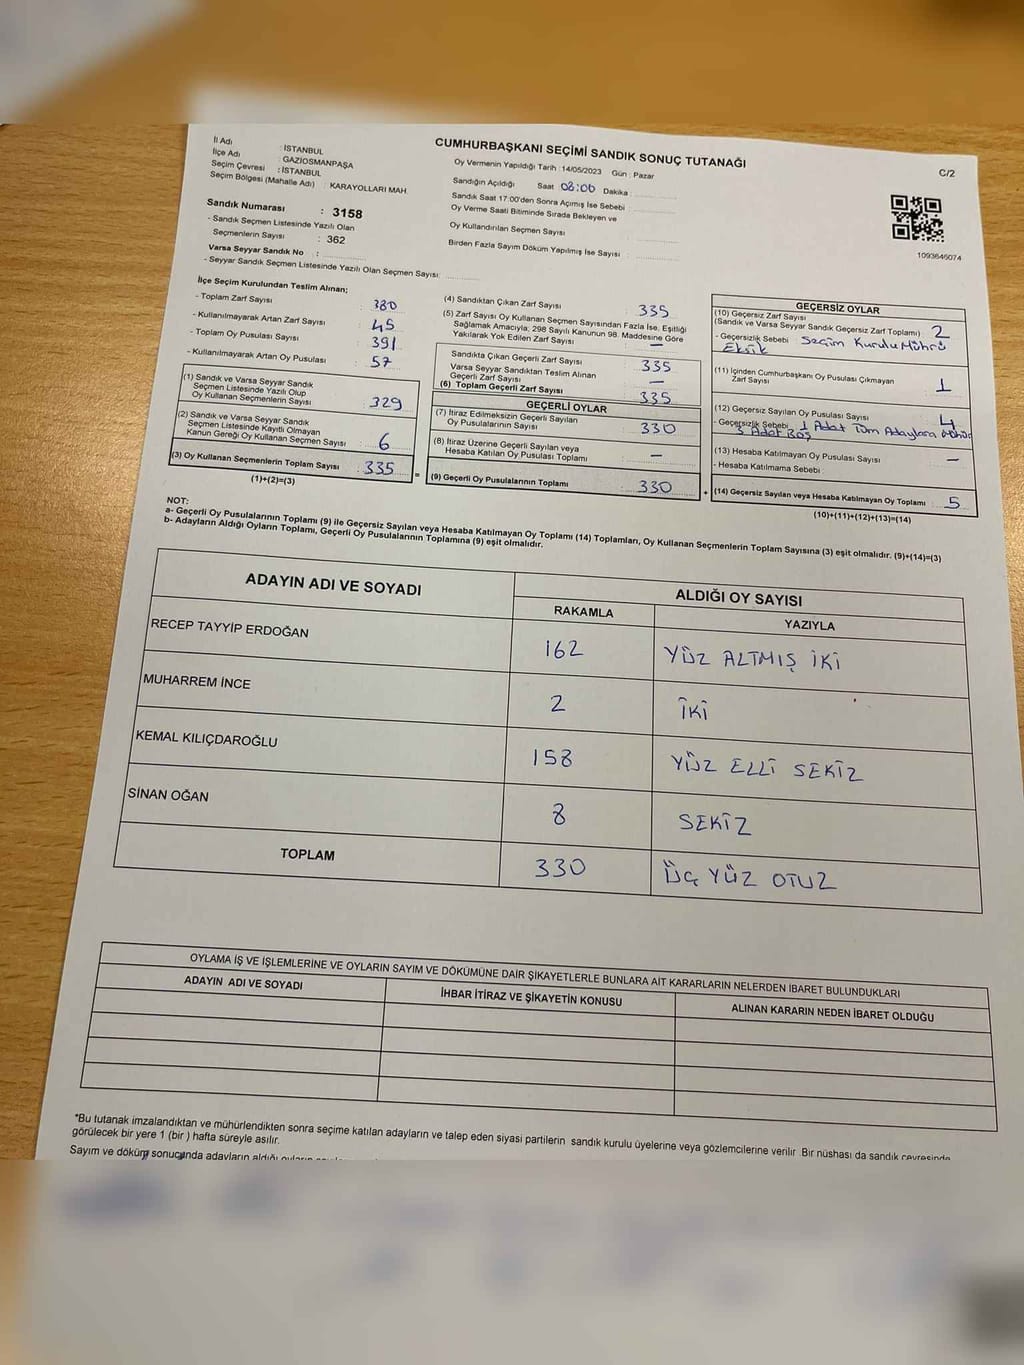 CUMHURBAŞKANI SEÇİMİ SANDIK SONUÇ TUTANAĞI
C/2
İl Adı : İSTANBUL
İlçe Adı : GAZİOSMANPAŞA
Seçim Çevresi : İSTANBUL
Seçim Bölgesi (Mahalle Adı) : KARAYOLLARI MAH.
Sandık Numarası : 3158
- Sandık Seçmen Listesinde Yazılı Olan
Seçmenlerin Sayısı : 362
Varsa Seyyar Sandık No :
- Seyyar Sandık Seçmen Listesinde Yazılı Olan Seçmen Sayısı:
Oy Vermenin Yapıldığı Tarih : 14/05/2023 Gün : Pazar
Sandığın Açıldığı Saat 08:00 Dakika :
Sandık Saat 17:00'den Sonra Açımış İse Sebebi :
Oy Verme Saati Bitiminde Sırada Bekleyen ve
Oy Kullandırılan Seçmen Sayısı
Birden Fazla Sayım Döküm Yapılmış İse Sayısı :
1093645074
İlçe Seçim Kurulundan Teslim Alınan;
- Toplam Zarf Sayısı : 380
- Kullanılmayarak Artan Zarf Sayısı : 45
- Toplam Oy Pusulası Sayısı : 391
- Kullanılmayarak Artan Oy Pusulası : 57
(1) Sandık ve Varsa Seyyar Sandık
Seçmen Listesinde Yazılı Olup
Oy Kullanan Seçmenlerin Sayısı : 329
(2) Sandık ve Varsa Seyyar Sandık
Seçmen Listesinde Kayıtlı Olmayan
Kanun Gereği Oy Kullanan Seçmen Sayısı : 6
(3) Oy Kullanan Seçmenlerin Toplam Sayısı : 335
(1)+(2)=(3)
(4) Sandıktan Çıkan Zarf Sayısı : 335
(5) Zarf Sayısı Oy Kullanan Seçmen Sayısından Fazla İse, Eşitliği
Sağlamak Amacıyla; 298 Sayılı Kanunun 98. Maddesine Göre
Yakılarak Yok Edilen Zarf Sayısı : —
Sandıkta Çıkan Geçerli Zarf Sayısı : 335
Varsa Seyyar Sandıktan Teslim Alınan
Geçerli Zarf Sayısı : —
(6) Toplam Geçerli Zarf Sayısı : 335
GEÇERLİ OYLAR
(7) İtiraz Edilmeksizin Geçerli Sayılan
Oy Pusulalarının Sayısı : 330
(8) İtiraz Üzerine Geçerli Sayılan veya
Hesaba Katılan Oy Pusulası Toplamı : —
(9) Geçerli Oy Pusulalarının Toplamı : 330
GEÇERSİZ OYLAR
(10) Geçersiz Zarf Sayısı
(Sandık ve Varsa Seyyar Sandık Geçersiz Zarf Toplamı) : 2
- Geçersizlik Sebebi : Seçim Kurulu Mührü
Eksik
(11) İçinden Cumhurbaşkanı Oy Pusulası Çıkmayan
Zarf Sayısı : 1
(12) Geçersiz Sayılan Oy Pusulası Sayısı : 4
- Geçersizlik Sebebi : 1 Adet Tüm Adaylara
3 Adet Boş
(13) Hesaba Katılmayan Oy Pusulası Sayısı : —
- Hesaba Katılmama Sebebi
(14) Geçersiz Sayılan veya Hesaba Katılmayan Oy Toplamı : 5
(10)+(11)+(12)+(13)=(14)
NOT:
a- Geçerli Oy Pusulalarının Toplamı (9) ile Geçersiz Sayılan veya Hesaba Katılmayan Oy Toplamı (14) Toplamları, Oy Kullanan Seçmenlerin Toplam Sayısına (3) eşit olmalıdır. (9)+(14)=(3)
b- Adayların Aldığı Oyların Toplamı, Geçerli Oy Pusulalarının Toplamına (9) eşit olmalıdır.
ADAYIN ADI VE SOYADI
ALDIĞI OY SAYISI
RAKAMLA YAZIYLA
RECEP TAYYİP ERDOĞAN 162 YÜZ ALTMIŞ İKİ
MUHARREM İNCE 2 İKİ
KEMAL KILIÇDAROĞLU 158 YÜZ ELLİ SEKİZ
SİNAN OĞAN 8 SEKİZ
TOPLAM 330 ÜÇ YÜZ OTUZ
OYLAMA İŞ VE İŞLEMLERİNE VE OYLARIN SAYIM VE DÖKÜMÜNE DAİR ŞİKAYETLERLE BUNLARA AİT KARARLARIN NELERDEN İBARET BULUNDUKLARI
ADAYIN ADI VE SOYADI İHBAR İTİRAZ VE ŞİKAYETİN KONUSU ALINAN KARARIN NEDEN İBARET OLDUĞU
*Bu tutanak imzalandıktan ve mühürlendikten sonra seçime katılan adayların ve talep eden siyasi partilerin sandık kurulu üyelerine veya gözlemcilerine verilir. Bir nüshası da sandık çevresinde
görülecek bir yere 1 (bir) hafta süreyle asılır.
Sayım ve döküm sonucunda adayların aldığı